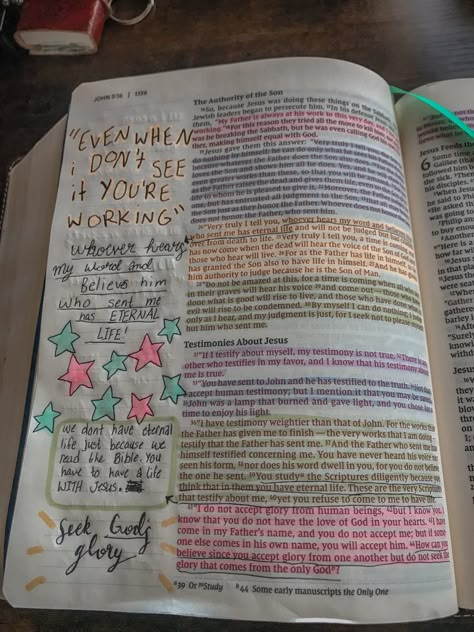 JOHN 5:16 | 1136
"EVEN WHEN
i DON'T SEE
it YOU'RE
WORKING"
whoever hears
my word and
Believes him
who sent me
has ETERNAL
LIFE!
we dont have eternal
life just because we
read the Bible. You
have to have a life
WITH Jesus.
Seek God's
glory
The Authority of the Son
16 So, because Jesus was doing these things on the Sabbath,
Jewish leaders began to persecute him. 17 In his defense
them, "My Father is always at his work to this very day, and I
working." 18 For this reason they tried all the more to kill him;
was he breaking the Sabbath, but he was even calling God his
ther, making himself equal with God.
19 Jesus gave them this answer: "Very truly I tell you,
do nothing by himself; he can do only what he sees his
because whatever the Father does the Son also does.
loves the Son and shows him all he does. Yes, and
even greater works than these, so that you will be
as the Father raises the dead and gives them life, even so the
life to whom he is pleased to give it. 22 Moreover, the Father
one, but has entrusted all judgment to the Son,
the Son just as they honor the Father. Whoever does
does not honor the Father, who sent him.
24 "Very truly I tell you, whoever hears my word and believes
who sent me has eternal life and will not be judged but has
over from death to life. 25 Very truly I tell you, a time is coming
has now come when the dead will hear the voice of the Son of
those who hear will live. 26 For as the Father has life in himself,
has granted the Son also to have life in himself. 27 And he has
him authority to judge because he is the Son of Man.
28 "Do not be amazed at this, for a time is coming when all who
in their graves will hear his voice 29 and come out—those who
done what is good will rise to live, and those who have done
evil will rise to be condemned. 30 By myself I can do nothing; I
only as I hear, and my judgment is just, for I seek not to please
but him who sent me.
Testimonies About Jesus
31 "If I testify about myself, my testimony is not true. 32 There is
other who testifies in my favor, and I know that his testimony
me is true.
33 "You have sent to John and he has testified to the truth.
accept human testimony; but I mention it that you may be saved.
35 John was a lamp that burned and gave light, and you chose for a
time to enjoy his light.
36 "I have testimony weightier than that of John. For the works
the Father has given me to finish—the very works that I am doing—
testify that the Father has sent me. 37 And the Father who sent me
himself testified concerning me. You have never heard his voice
seen his form, 38 nor does his word dwell in you, for you do not believe
the one he sent. 39 You study a the Scriptures diligently because you
think that in them you have eternal life. These are the very Scriptures
that testify about me, 40 yet you refuse to come to me to have life.
41 "I do not accept glory from human beings, 42 but I know you. I
know that you do not have the love of God in your hearts. 43 I have
come in my Father's name, and you do not accept me; but if some
one else comes in his own name, you will accept him. 44 How can you
believe since you accept glory from one another but do not seek the
glory that comes from the only God b?
a 39 Or 39 Study b 44 Some early manuscripts the Only One
Jesus Feeds
6 Some